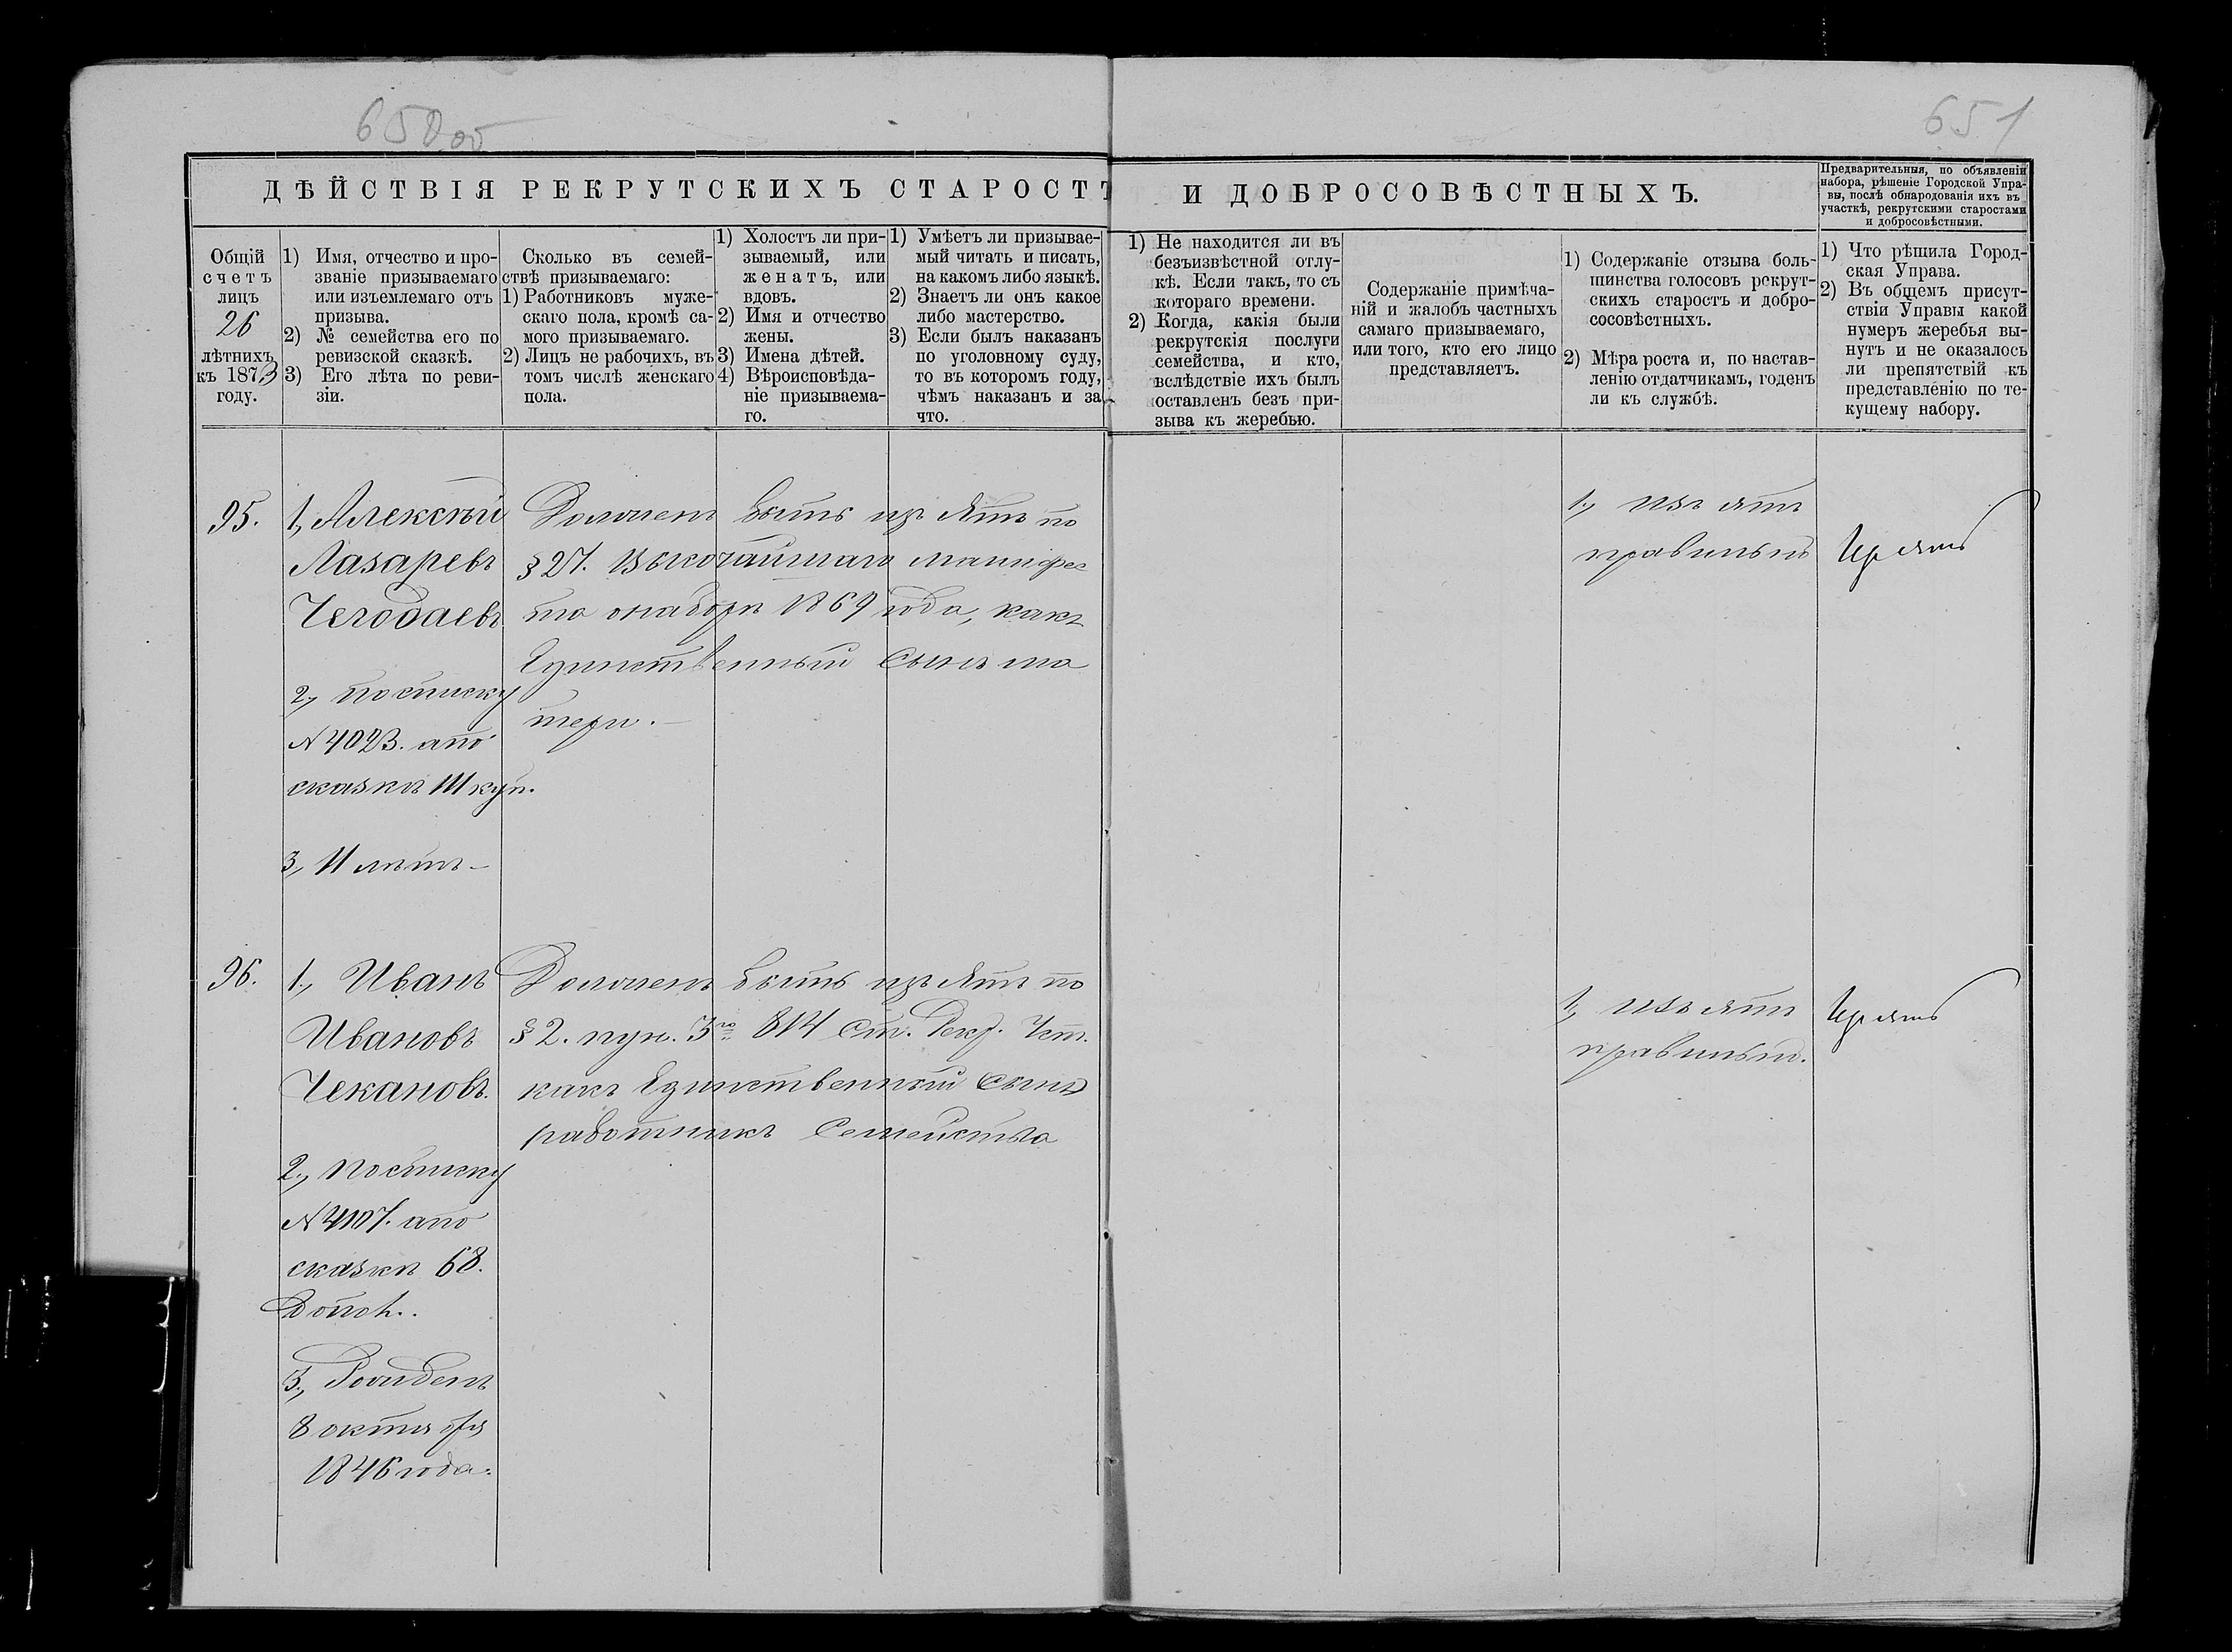 650об
651
ДѢЙСТВІЯ РЕКРУТСКИХЪ СТАРОСТЪ И ДОБРОСОВѢСТНЫХЪ.
Предварительныя, по объявленіи
набора, рѣшеніе Городской Упра-
вы, послѣ обнародованія ихъ въ
участкѣ, рекрутскими старостами
и добросовѣстными.
Общій
счетъ
лицъ
26
лѣтнихъ
къ 1873
году.
1) Имя, отчество и про-
званіе призываемаго
или изъемлемаго отъ
призыва.
2) № семейства его по
ревизской сказкѣ.
3) Его лѣта по реви-
зіи.
Сколько въ семей-
ствѣ призываемаго:
1) Работниковъ муже-
скаго пола, кромѣ са-
мого призываемаго.
2) Лицъ не рабочихъ, въ
томъ числѣ женскаго
пола.
1) Холостъ ли при-
зываемый, или
женатъ, или
вдовъ.
2) Имя и отчество
жены.
3) Имена дѣтей.
4) Вѣроисповѣда-
ніе призываема-
го.
1) Умѣетъ ли призывае-
мый читать и писать,
на какомъ либо языкѣ.
2) Знаетъ ли онъ какое
либо мастерство.
3) Если былъ наказанъ
по уголовному суду,
то въ которомъ году,
чѣмъ наказанъ и за
что.
1) Не находится ли въ
безъизвѣстной отлу-
кѣ. Если такъ, то съ
котораго времени.
2) Когда, какія были
рекрутскія послуги
семейства, и кто,
вслѣдствіе ихъ былъ
оставленъ безъ при-
зыва къ жеребью.
Содержаніе примѣча-
ній и жалобъ частныхъ
самаго призываемаго,
или того, кто его лицо
представляетъ.
1) Содержаніе отзыва боль-
шинства голосовъ рекрут-
скихъ старостъ и добро-
сосовѣстныхъ.
2) Мѣра роста и, по настав-
ленію отдатчикамъ, годенъ
ли къ службѣ.
1) Что рѣшила Город-
ская Управа.
2) Въ общемъ присут-
ствіи Управы какой
нумеръ жеребья вы-
нутъ и не оказалось
ли препятствій къ
представленію по те-
кущему набору.
95.
1, Алексѣй
Лазаревъ
Чегодаевъ
2, по списку
№ 4023. апо
сказкѣ III куп.
3, 11 лѣтъ
Долженъ быть изъятъ по
§ 27. Высочайшаго манифес
та о наборѣ 1869 года, какъ
Единственный сынъ ма
тери.
1, изъятъ
правильно
Изъять
96.
1, Иванъ
Ивановъ
Чекановъ.
2, по списку
№ 4107. апо
сказкѣ 68.
Допол.
3, Рожденъ
8 октября
1846 года.
Долженъ быть изъятъ по
§ 2. пун. 3го 814 Ст. Рекр. Уст.
какъ Единственный сынъ
работникъ Семейства
1, изъятъ
правильно.
Изъять